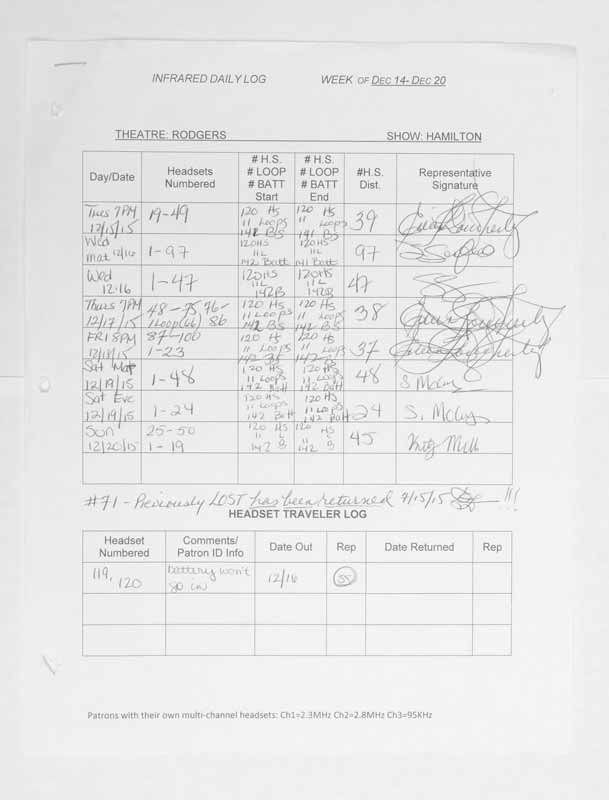 INFRARED DAILY LOG WEEK OF DEC 14- DEC 20
THEATRE: RODGERS SHOW: HAMILTON
Day/Date Headsets Numbered # H.S. # LOOP # BATT Start # H.S. # LOOP # BATT End #H.S. Dist. Representative Signature
Tues 7PM 12/15/15 19-49 120 HS 11 Loops 142 BS 120 HS 11 Loops 141 BS 39
Wed mat 12/16 1-97 120HS 11L 142 Batt 120HS 11L 141 Batt 97
Wed 12.16 1-47 120HS 11L 142B 120HS 11L 142B 47
Thurs 7PM 12/17/15 48-75 76-86 1Loop(66) 120 HS 11 Loops 142 BS 120 HS 11 Loops 142 BS 38
FRI 8PM 12/18/15 87-100 1-23 120 HS 11 Loops 142 BS 120 HS 11 Loops 142 BS 37
Sat Mat 12/19/15 1-48 120 HS 11 Loops 142 Batt 120 HS 11 Loops 142 Batt 48
Sat Eve 12/19/15 1-24 120 HS 11 Loops 142 Batt 120 HS 11 Loops 142 Batt 24
Sun 12/20/15 25-50 1-19 120 HS 11 L 142 B 120 HS 11 L 142 B 45
#71 - Previously LOST has been returned 9/15/15 !!!
HEADSET TRAVELER LOG
Headset Numbered Comments/ Patron ID Info Date Out Rep Date Returned Rep
119, 120 battery won't go in 12/16 SS
Patrons with their own multi-channel headsets: Ch1=2.3MHz Ch2=2.8MHz Ch3=95KHz